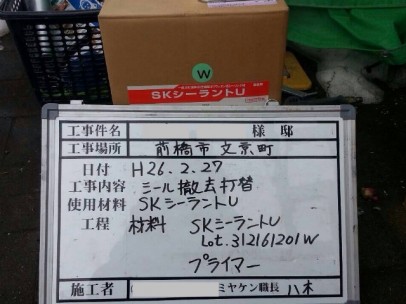 W
SKシーラントU
工事件名 様邸
工事場所 前橋市 文京町
日付 H26.2.27
工事内容 シール撤去打替
使用材料 SKシーラントU
工程 材料 SKシーラントU
Lot.312161201W
プライマー
施工者 ミヤケン職長 八木